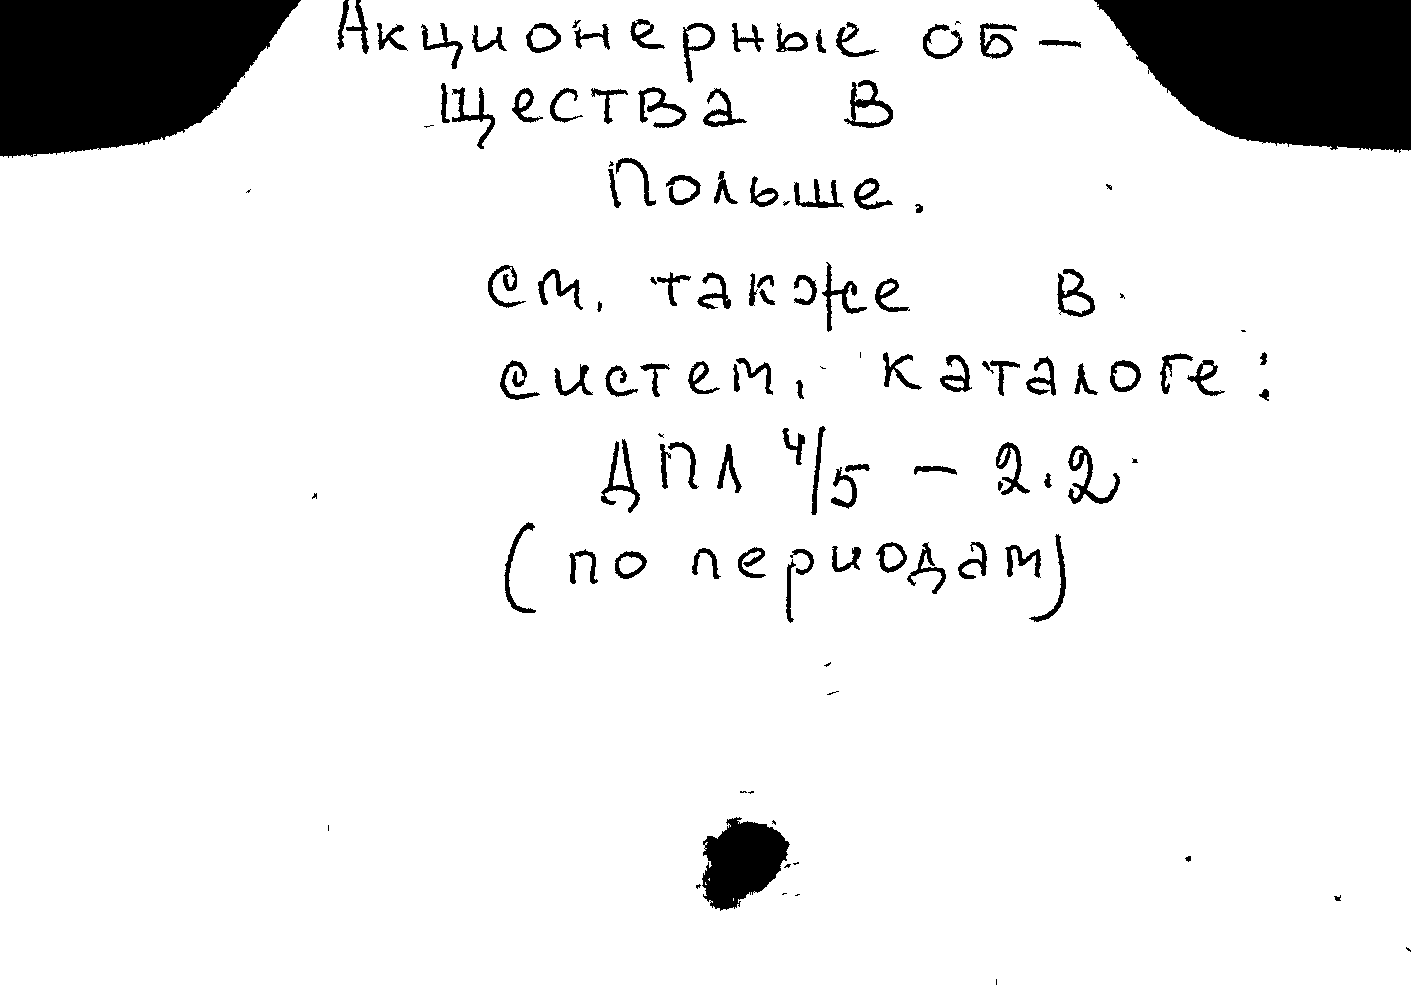 Акционерные об-
щества в
Польше.
см. также в
систем. каталоге:
ДПЛ 4/5 - 2.2
(по периодам)